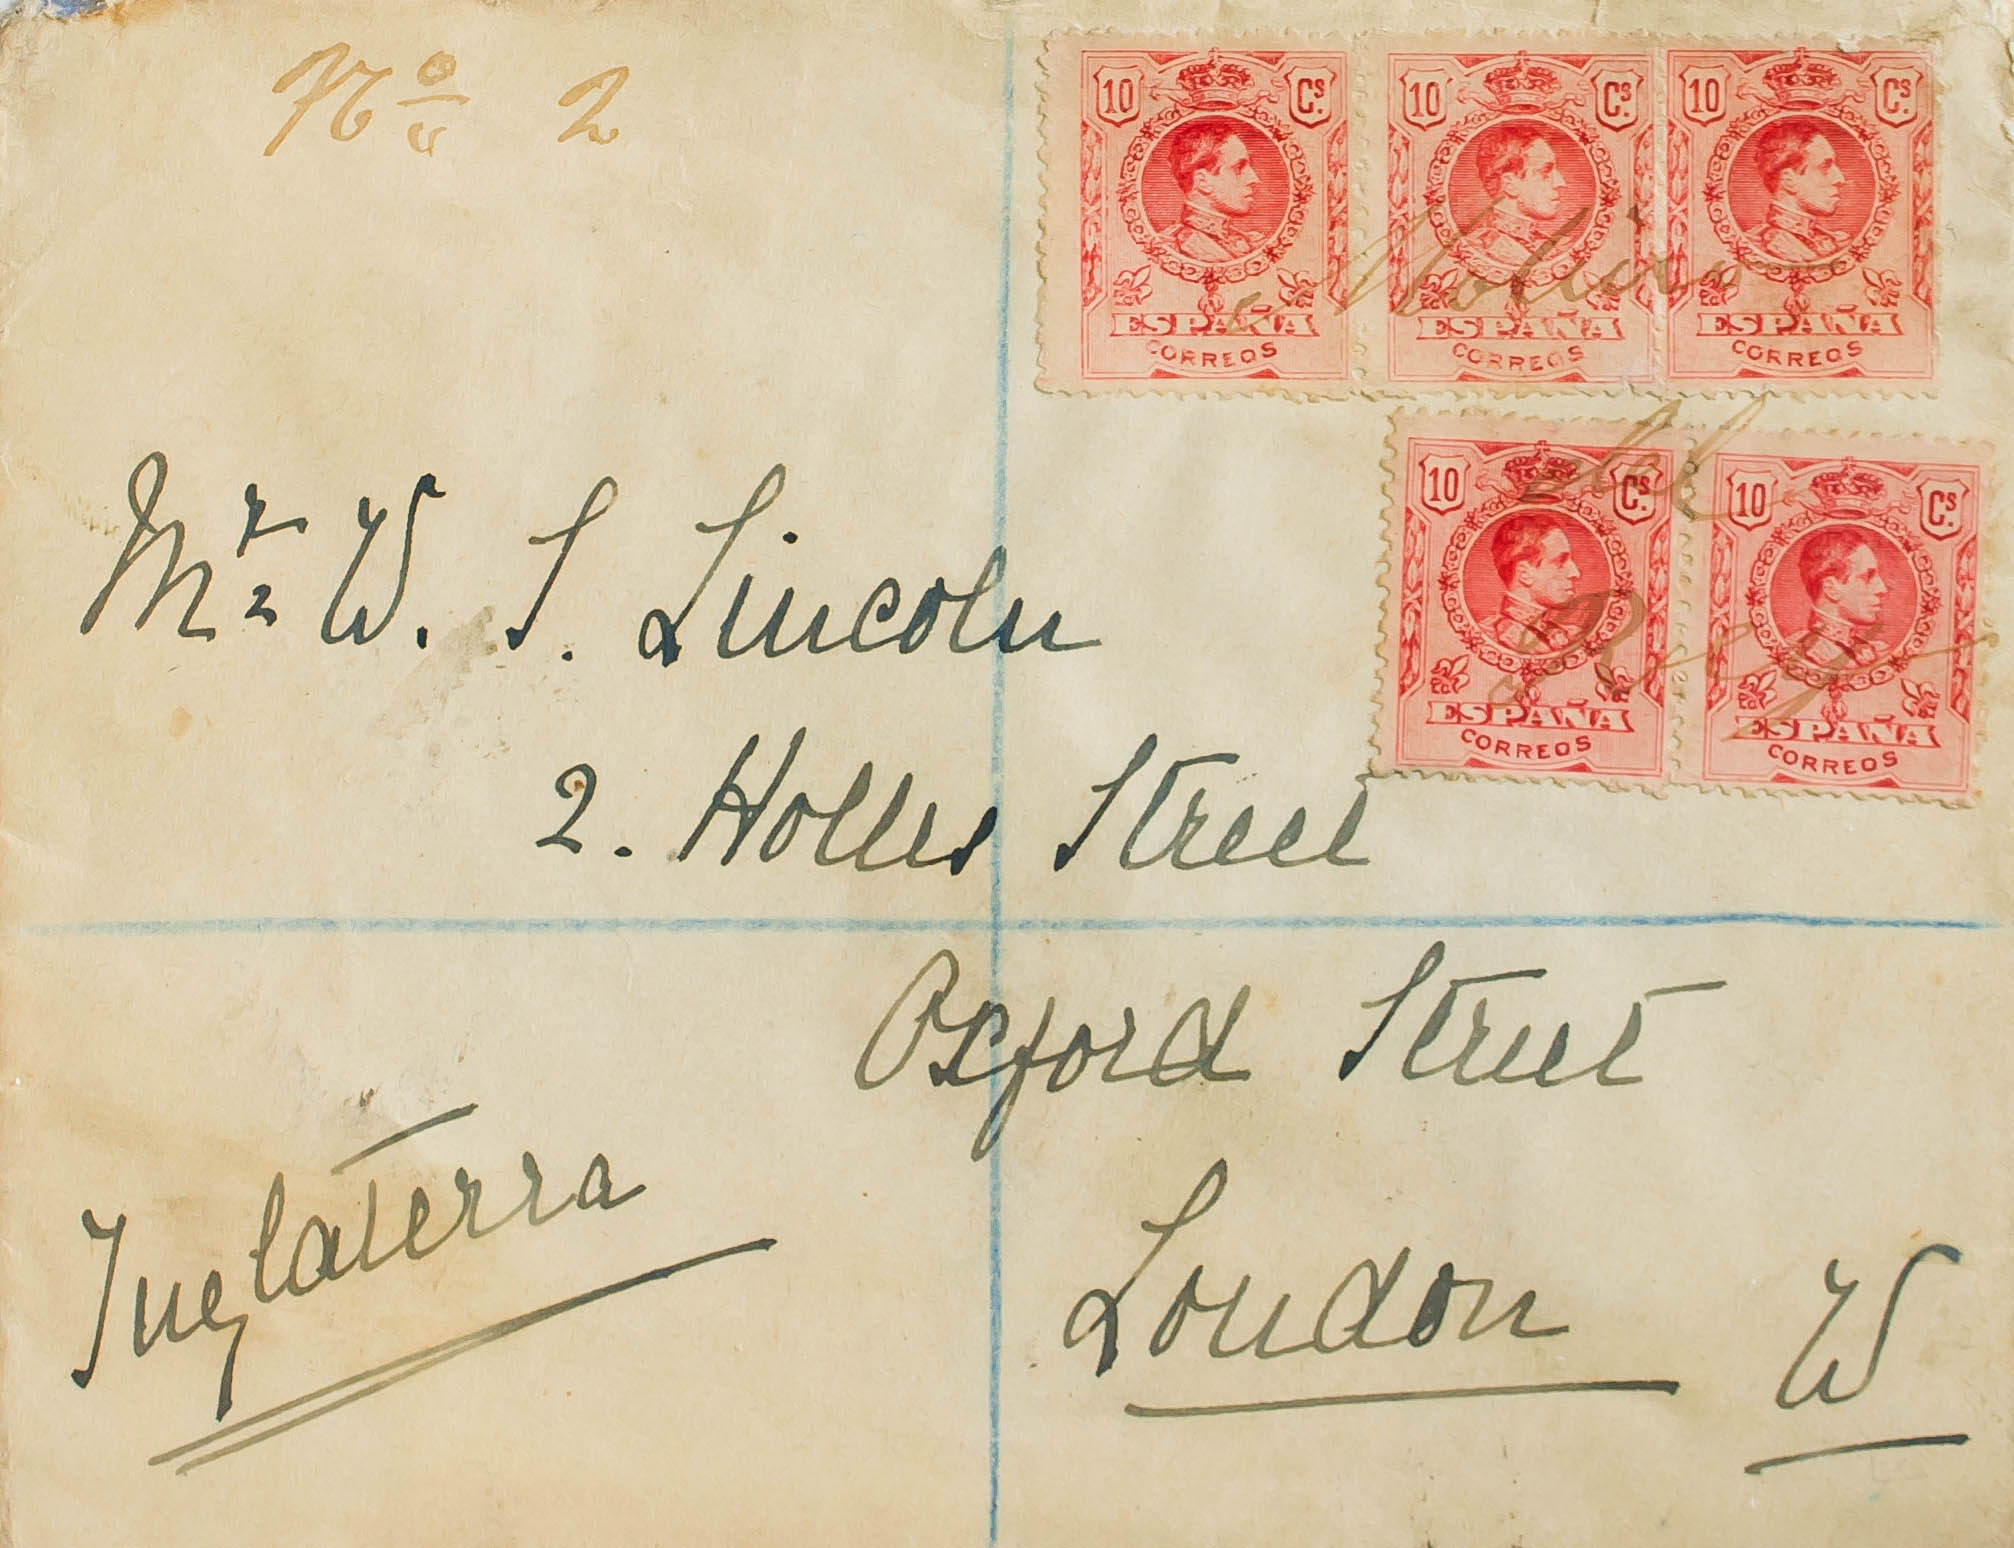 Nº 2
10 Cs.
ESPAÑA
CORREOS
10 Cs.
ESPAÑA
CORREOS
10 Cs.
ESPAÑA
CORREOS
Molina
del
Rey
10 Cs.
ESPAÑA
CORREOS
10 Cs.
ESPAÑA
CORREOS
Mr. W. S. Lincoln
2. Holles Street
Oxford Street
London W
Inglaterra